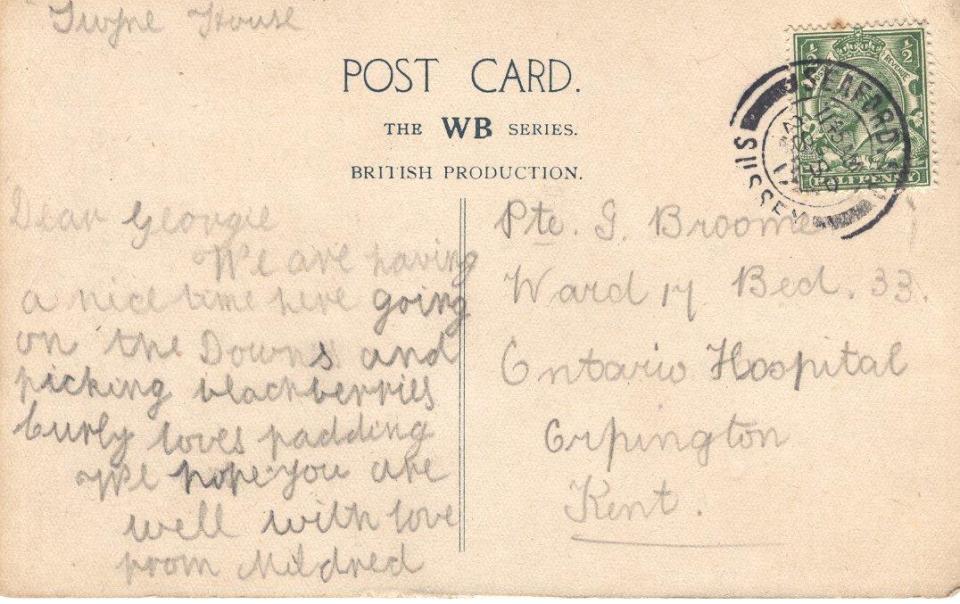 Twyne House
POST CARD.
THE WB SERIES.
BRITISH PRODUCTION.
SEAFORD
SUSSEX
HALFPENNY
½ ½
Dear Georgie
We are having
a nice time here going
on the Downs and
picking blackberries
Curly loves padding
We hope you are
well with love
from Mildred
Pte. G. Broome
Ward 17 Bed. 33.
Ontario Hospital
Orpington
Kent.